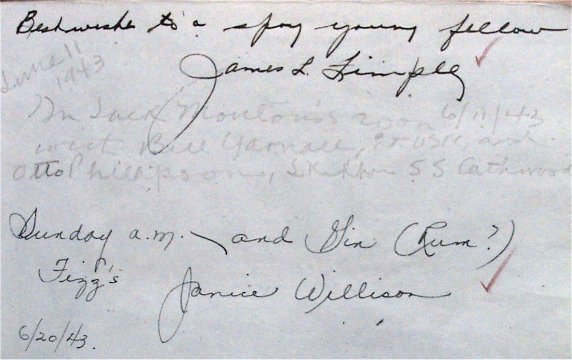 Best wishes to a spry young fellow
James L.
June 11
1943
In Jack Moulton's room 6/11/43
with Bill Yarnall, Lt USN, and
Otto Phillipson, Skipper SS
Sunday a.m. - and Gin (Rum?)
Fizz's Janice Willison
6/20/43.